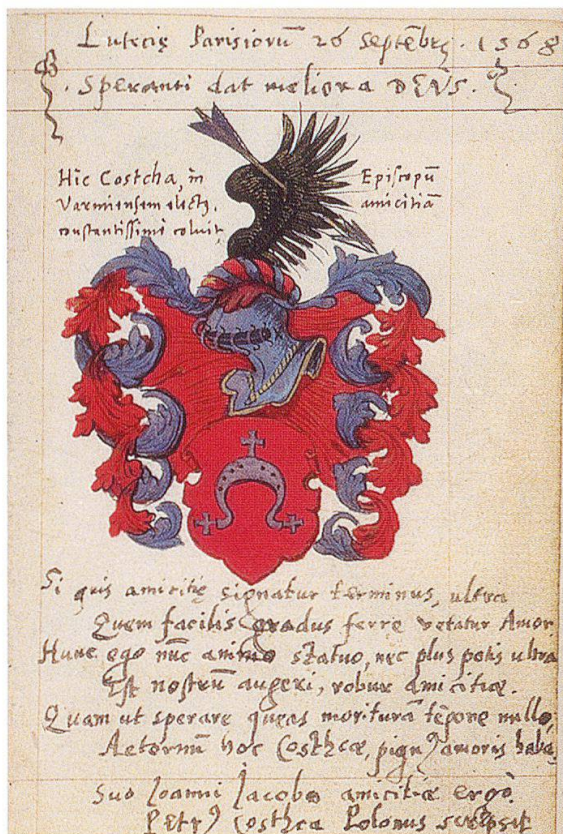 Lutecię Parisiorū 26 Septēbrȝ . 1568
. Speranti dat meliora DEVS .
Hic Costcha, in Episcopū
Varmiensem electꝰ, amicitiā
constantissimè coluit
Si quis amicitię signatur terminus, ultra
Quem facilis gradus ferre vetatur Amor
Hunc ego nūc animo statuo, nec plus potis ultra
Est nostrū augeri, robur amicitiæ.
Quam ut sperare queas moriturā tēpore nullo,
Aeternū hoc Costhcæ, pignꝰ amoris habe,
Suo Joanni Jacobo amicitiæ ergò
Petrꝰ Costhca Polonus scripsit